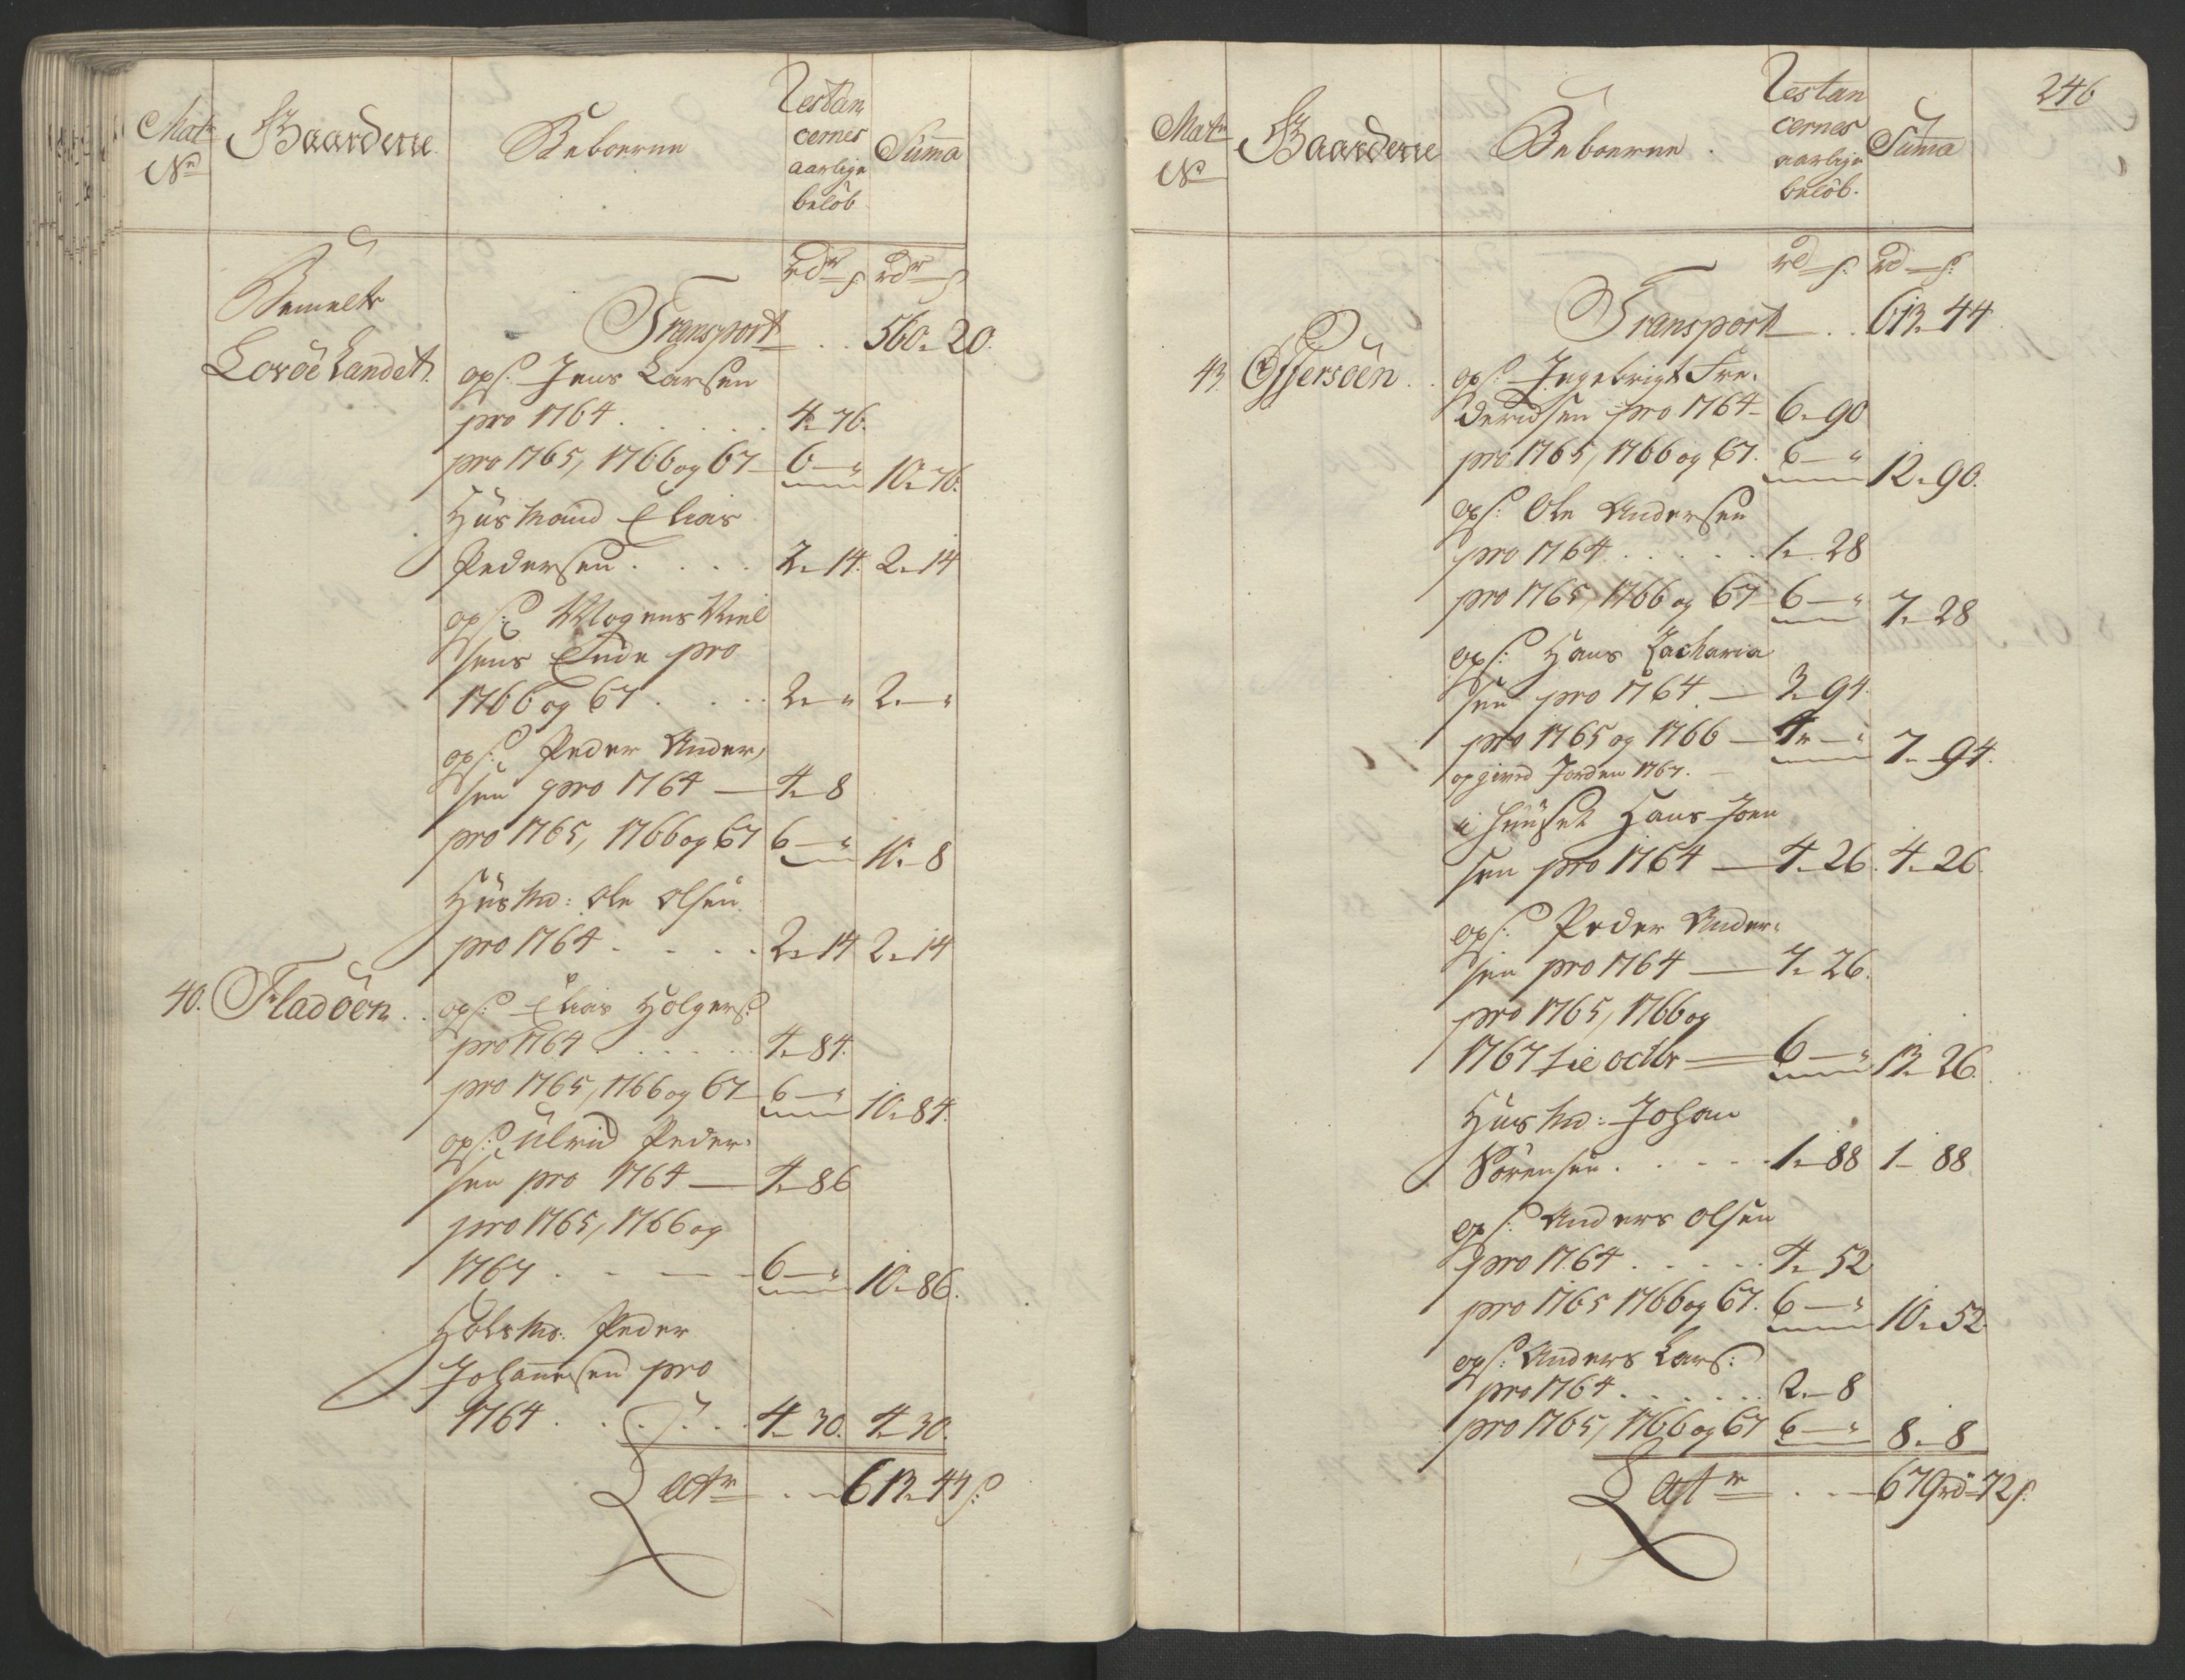 Matr
No
Gaarderne
Beboerne
Restan
cernes
aarlige
beløb
Suma
rdr ſ: rdr ſ
Bemelte
Lovöe Landet.
Transport . . 560 „ 20.
opſ: Jens Larsen
pro 1764 . . . . . 4 „ 76.
pro 1765, 1766 og 67 — 6 — „ 10 „ 76.
Huusmand Elias
Pedersen . . . . 2 „ 14. 2 „ 14
opſ: Mogens Niel
sens Enke pro
1766 og 67 . . . . 2 „ — „ 2 „ — „
opſ: Peder Ander,
sen pro 1764 — 4 „ 8
pro 1765, 1766 og 67 6 — „ 10. — 8
Huusmd: Ole Olsen
pro 1764 . . . . 2 „ 14 2 „ 14
40. Fladöen . . opſ: Elias Holgers:
pro 1764 . . . . . 4 „ 84.
pro 1765, 1766 og 67 — 6 — „ 10 „ 84.
opſ: Ulrid Peder-
sen pro 1764 — 4 „ 86
pro 1765, 1766 og
1767 . - - — - 6 — „ 10 „ 86.
Huusmd: Peder
Johannesen pro
1764 . . . . . 4 „ 30. 4 „ 30.
Latr . . — 613 „ 44 ſ:
246
Matr
No
Gaarderne
Beboerne .
Restan
cernes
aarlige
beløb.
Suma
rd — ſ: rd — ſ:
Transport . . 613 „ 44
43. Offersöen . . opſ: Ingebrigt Fre-
deridsen pro 1764 — 6 „ 90
pro 1765, 1766 og 67. 6 — „ 12 „ 90.
opſ: Ole Andersen
pro 1764 . . . . . 1 „ 28
pro 1765, 1766 og 67 — 6 — „ 7 „ 28
opſ: Hans Zacharia
sen pro 1764 — 3 „ 94.
pro 1765 og 1766 — 4 „ — „ 7 „ 94.
opgived Jorden 1767. —
i Huuset Hans Joen
sen pro 1764 — 4 „ 26. 4 „ 26.
opſ: Peder Ander-
sen pro 1764 — 7 „ 26.
pro 1765, 1766 og
1767 til octbr — 6 — „ 13 „ 26.
Huusmd: Johan
Sörensen . . - - - 1 „ 88 1 — 88.
opſ: Anders Olsen
pro 1764 . . . . . 4 „ 52
pro 1765 1766 og 67. 6 — „ 10 „ 52.
opſ: Anders Lars:
pro 1764 . . . . . . 2 „ 8
pro 1765, 1766 og 67 6 — „ 8 „ 8
Latr . . — 679 rd „ 72 ſ: